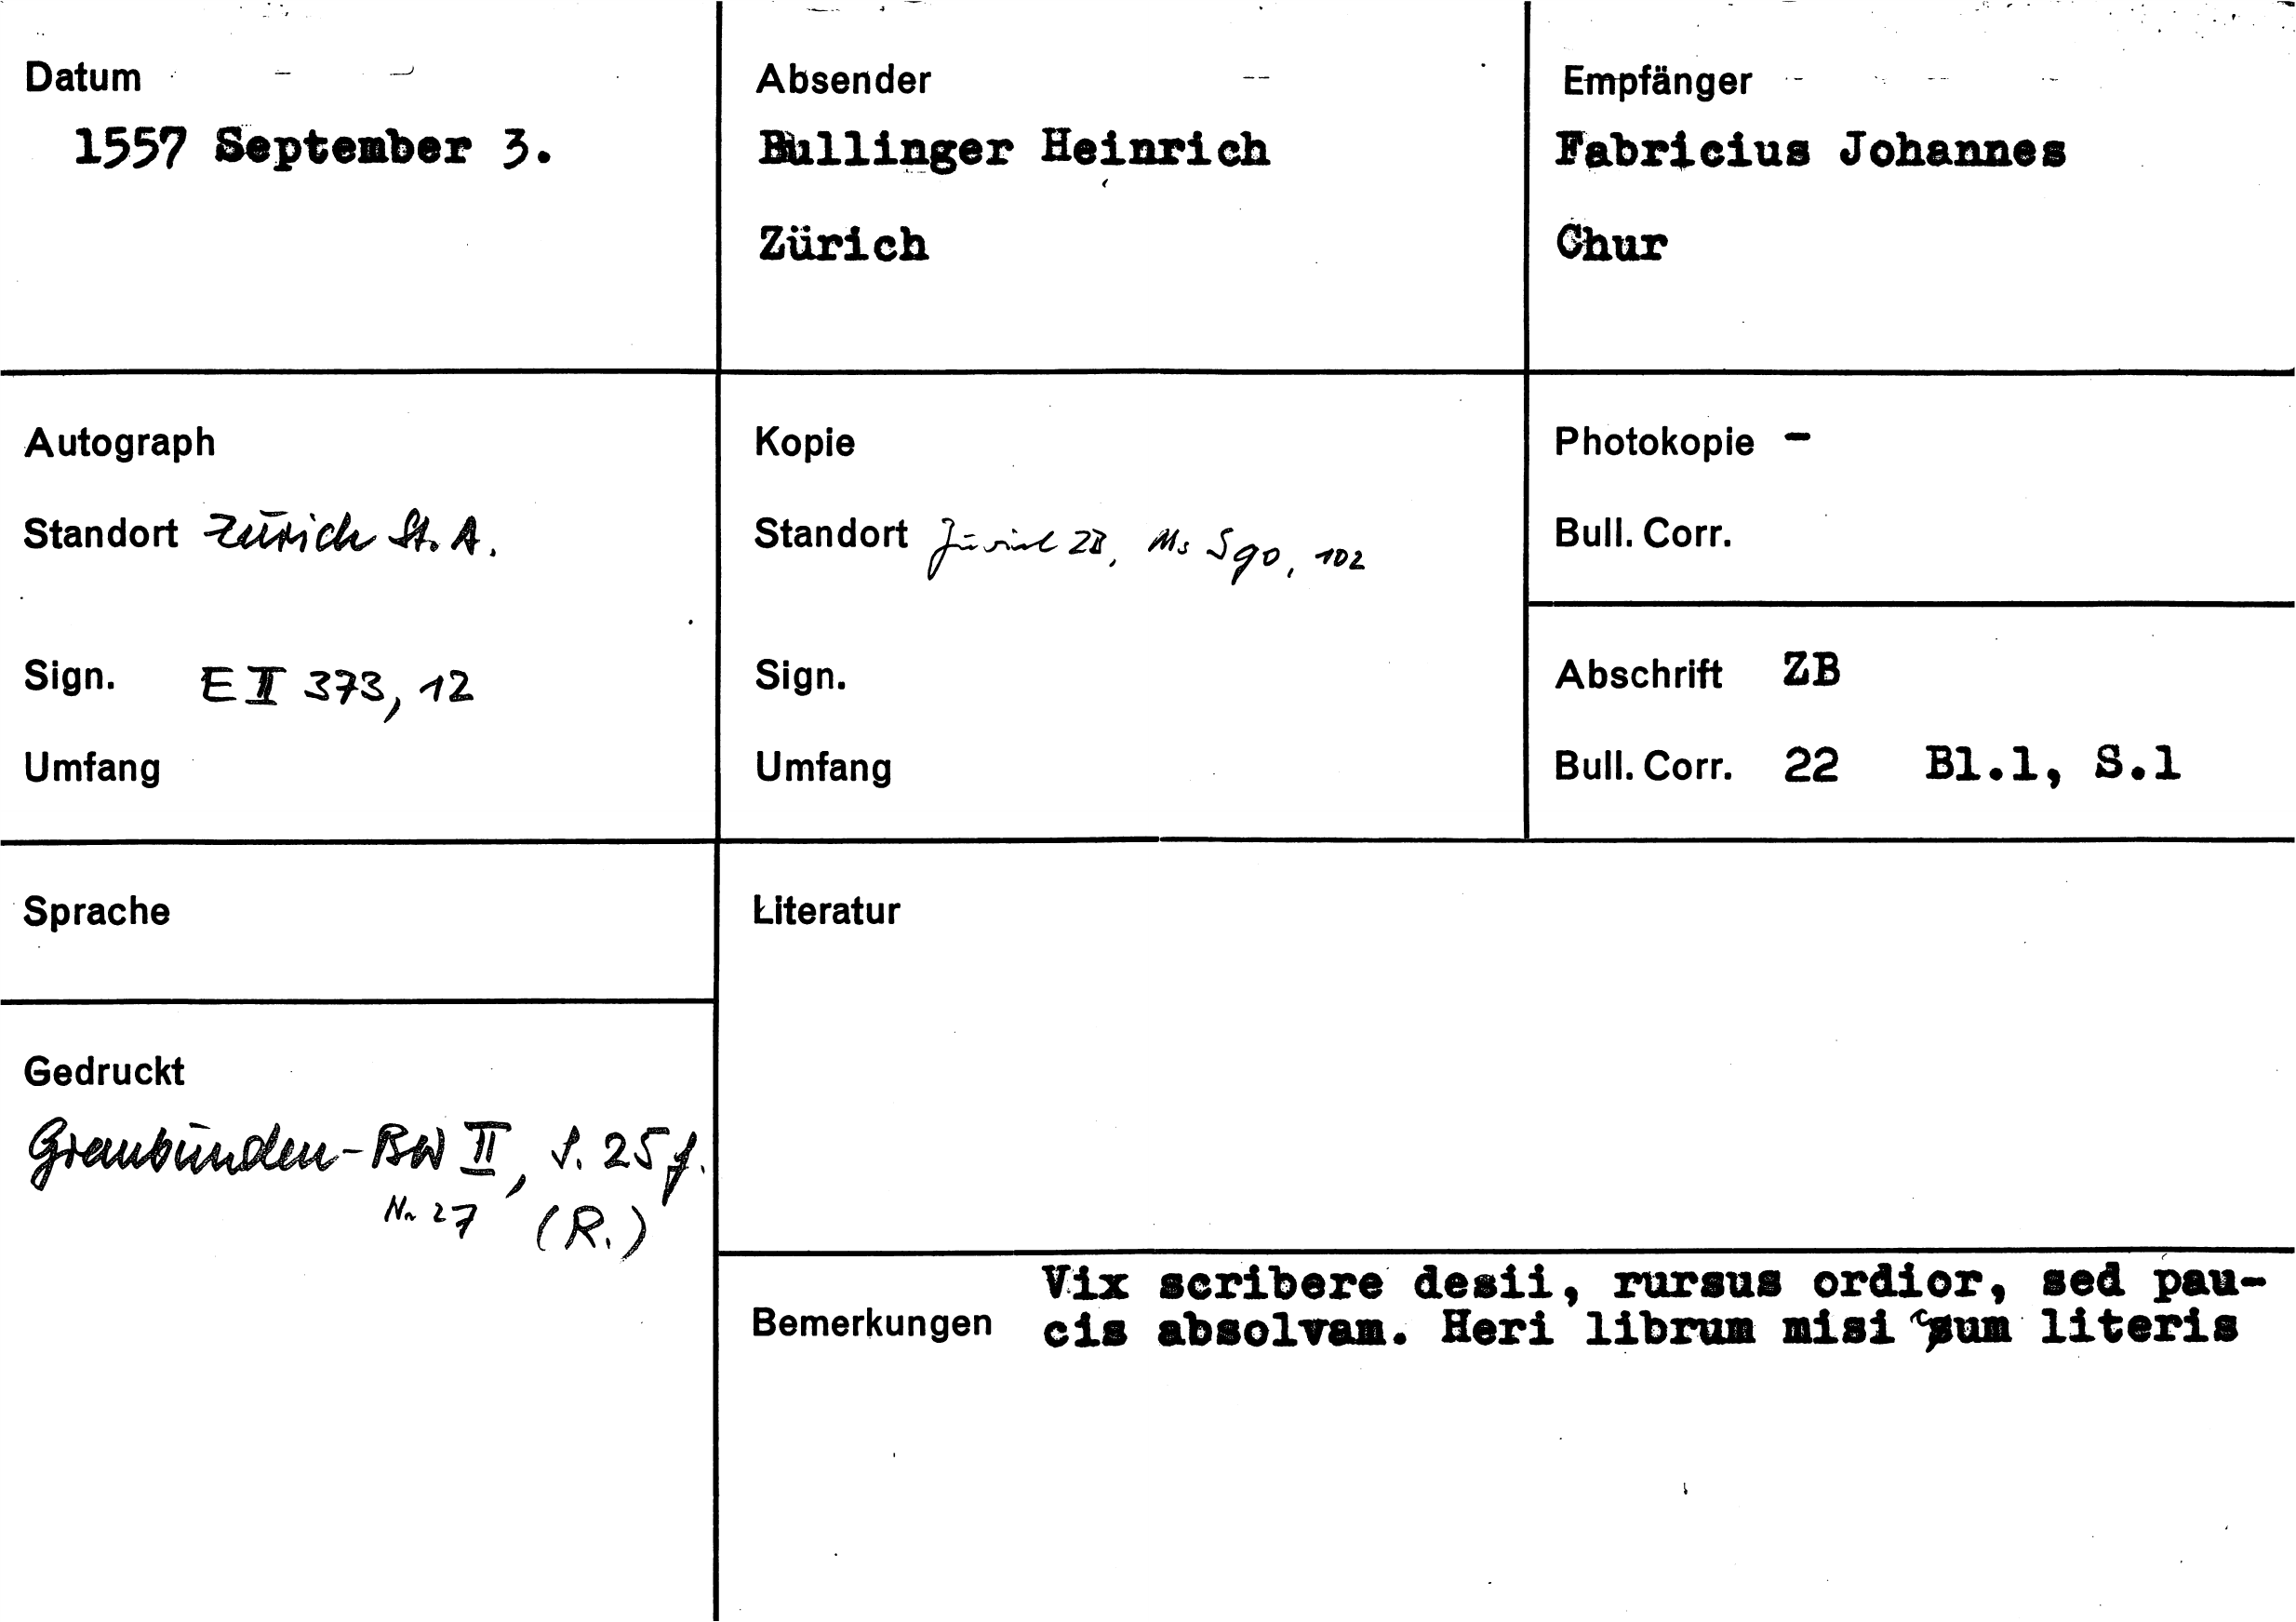 Datum
1557 September 3.
Absender
Bullinger Heinrich
Zürich
Empfänger
Fabricius Johannes
Chur
Autograph
Standort Zürich St. A.
Sign. E II 373, 12
Umfang
Kopie
Standort Zürich ZB, Ms S 90, 102
Sign.
Umfang
Photokopie -
Bull. Corr.
Abschrift ZB
Bull. Corr. 22 Bl.1, S.1
Sprache
Gedruckt
Graubünden-BW II, S. 25 f.
Nr 27 (R.)
Literatur
Bemerkungen
Vix scribere desii, rursus ordior, sed pau-
cis absolvam. Heri librum misi cum literis